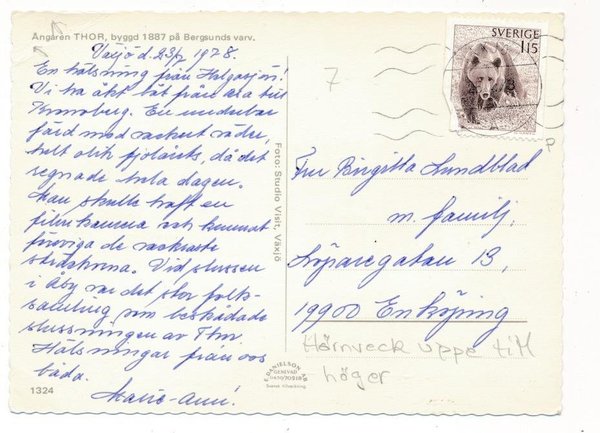 Ångaren THOR, byggd 1887 på Bergsunds varv.
Växjö d. 23/7 1978.
En hälsning från Helgasjön!
Vi ha åkt båt från oss till
Kronoberg. En underbar
färd med vackert väder,
helt olik fjolårets, då det
regnade hela dagen.
Man skulle haft en
filmkamera och kunnat
föreviga de vackraste
sträckorna. Vid slussen
i Åby var det stor folk-
samling som beskådade
slussningen av Thor.
Hälsningar från oss
båda.
Marie-Ann.
1324
Foto: Studio Visit, Växjö
E. DANIELSON
GENEVAD
Svensk tillverkning.
SVERIGE
115
7
Fru Birgitta Lundblad
m. familj.
Löparegatan 13,
19900 Enköping
Hörnveck uppe till
höger